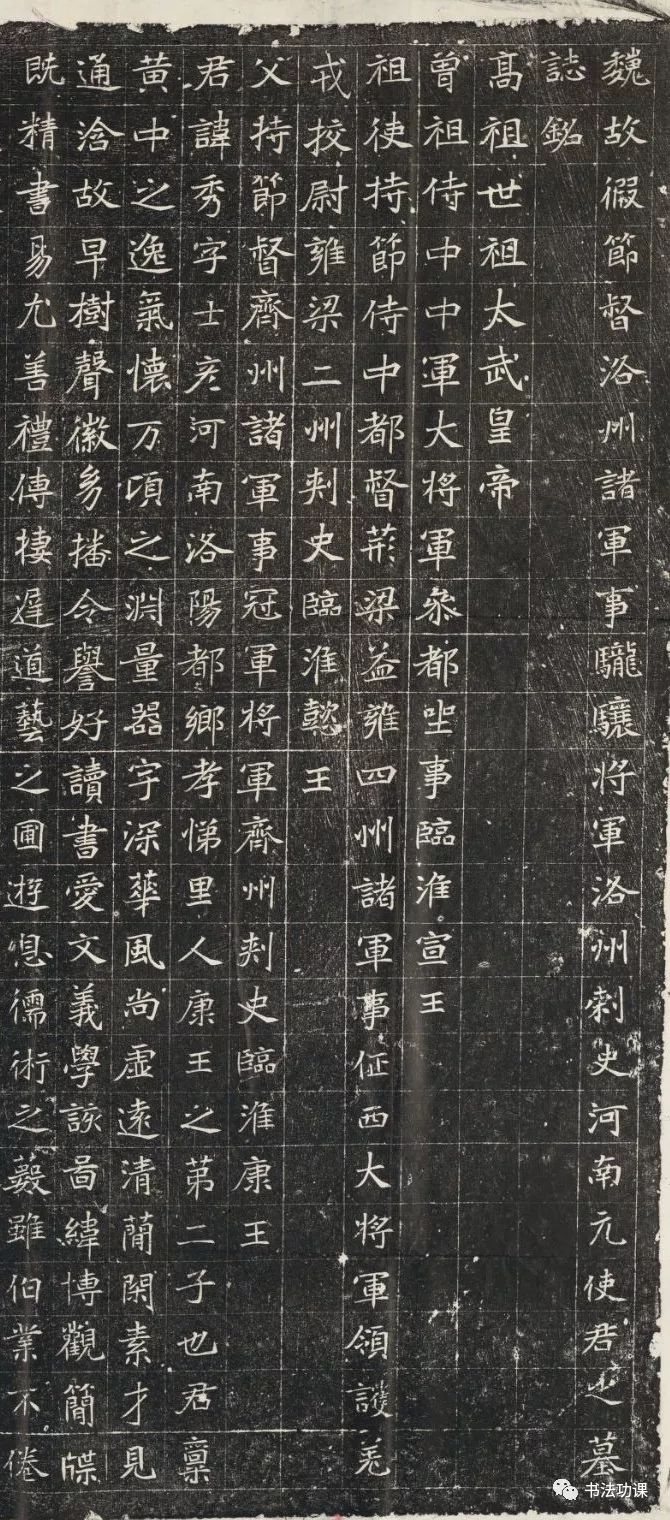 魏故假節督洛州諸軍事驪驤將軍洛州刺史河南元使君之墓
誌銘
髙祖世祖太武皇帝
曾祖侍中中軍大将軍叅都㘴事臨淮宣王
祖使持節侍中都督荊梁益雍四州諸軍事征西大将軍領護羌
戎挍尉雍梁二州刾史臨淮懿王
父持節督齊州諸軍事冠軍将軍齊州刾史臨淮康王
君諱秀字士彦河南洛陽都鄉孝悌里人康王之苐二子也君稟
黄中之逸氣懐万頃之淵量器宇深華風尚虚遠清蕳閑素才見
通洽故早樹聲徽多播令譽好讀書愛文義學該啚緯博觀簡牒
既精書易尤善禮傳棲遅道藝之圃遊息儒術之藪雖伯業不倦
书法功课